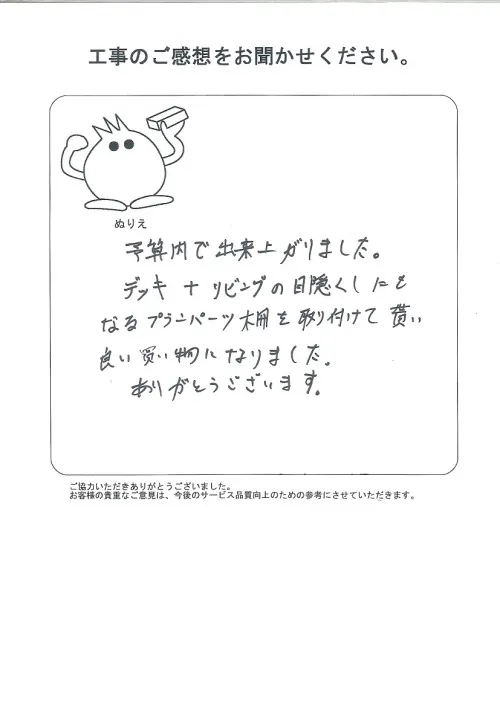 工事のご感想をお聞かせください。
ぬりえ
予算内で出来上がりました。
デッキ + リビングの目隠くしにも
なるプランパーツ柵を取り付けて貰い
良い買い物になりました。
ありがとうございます。
ご協力いただきありがとうございました。
お客様の貴重なご意見は、今後のサービス品質向上のための参考にさせていただきます。